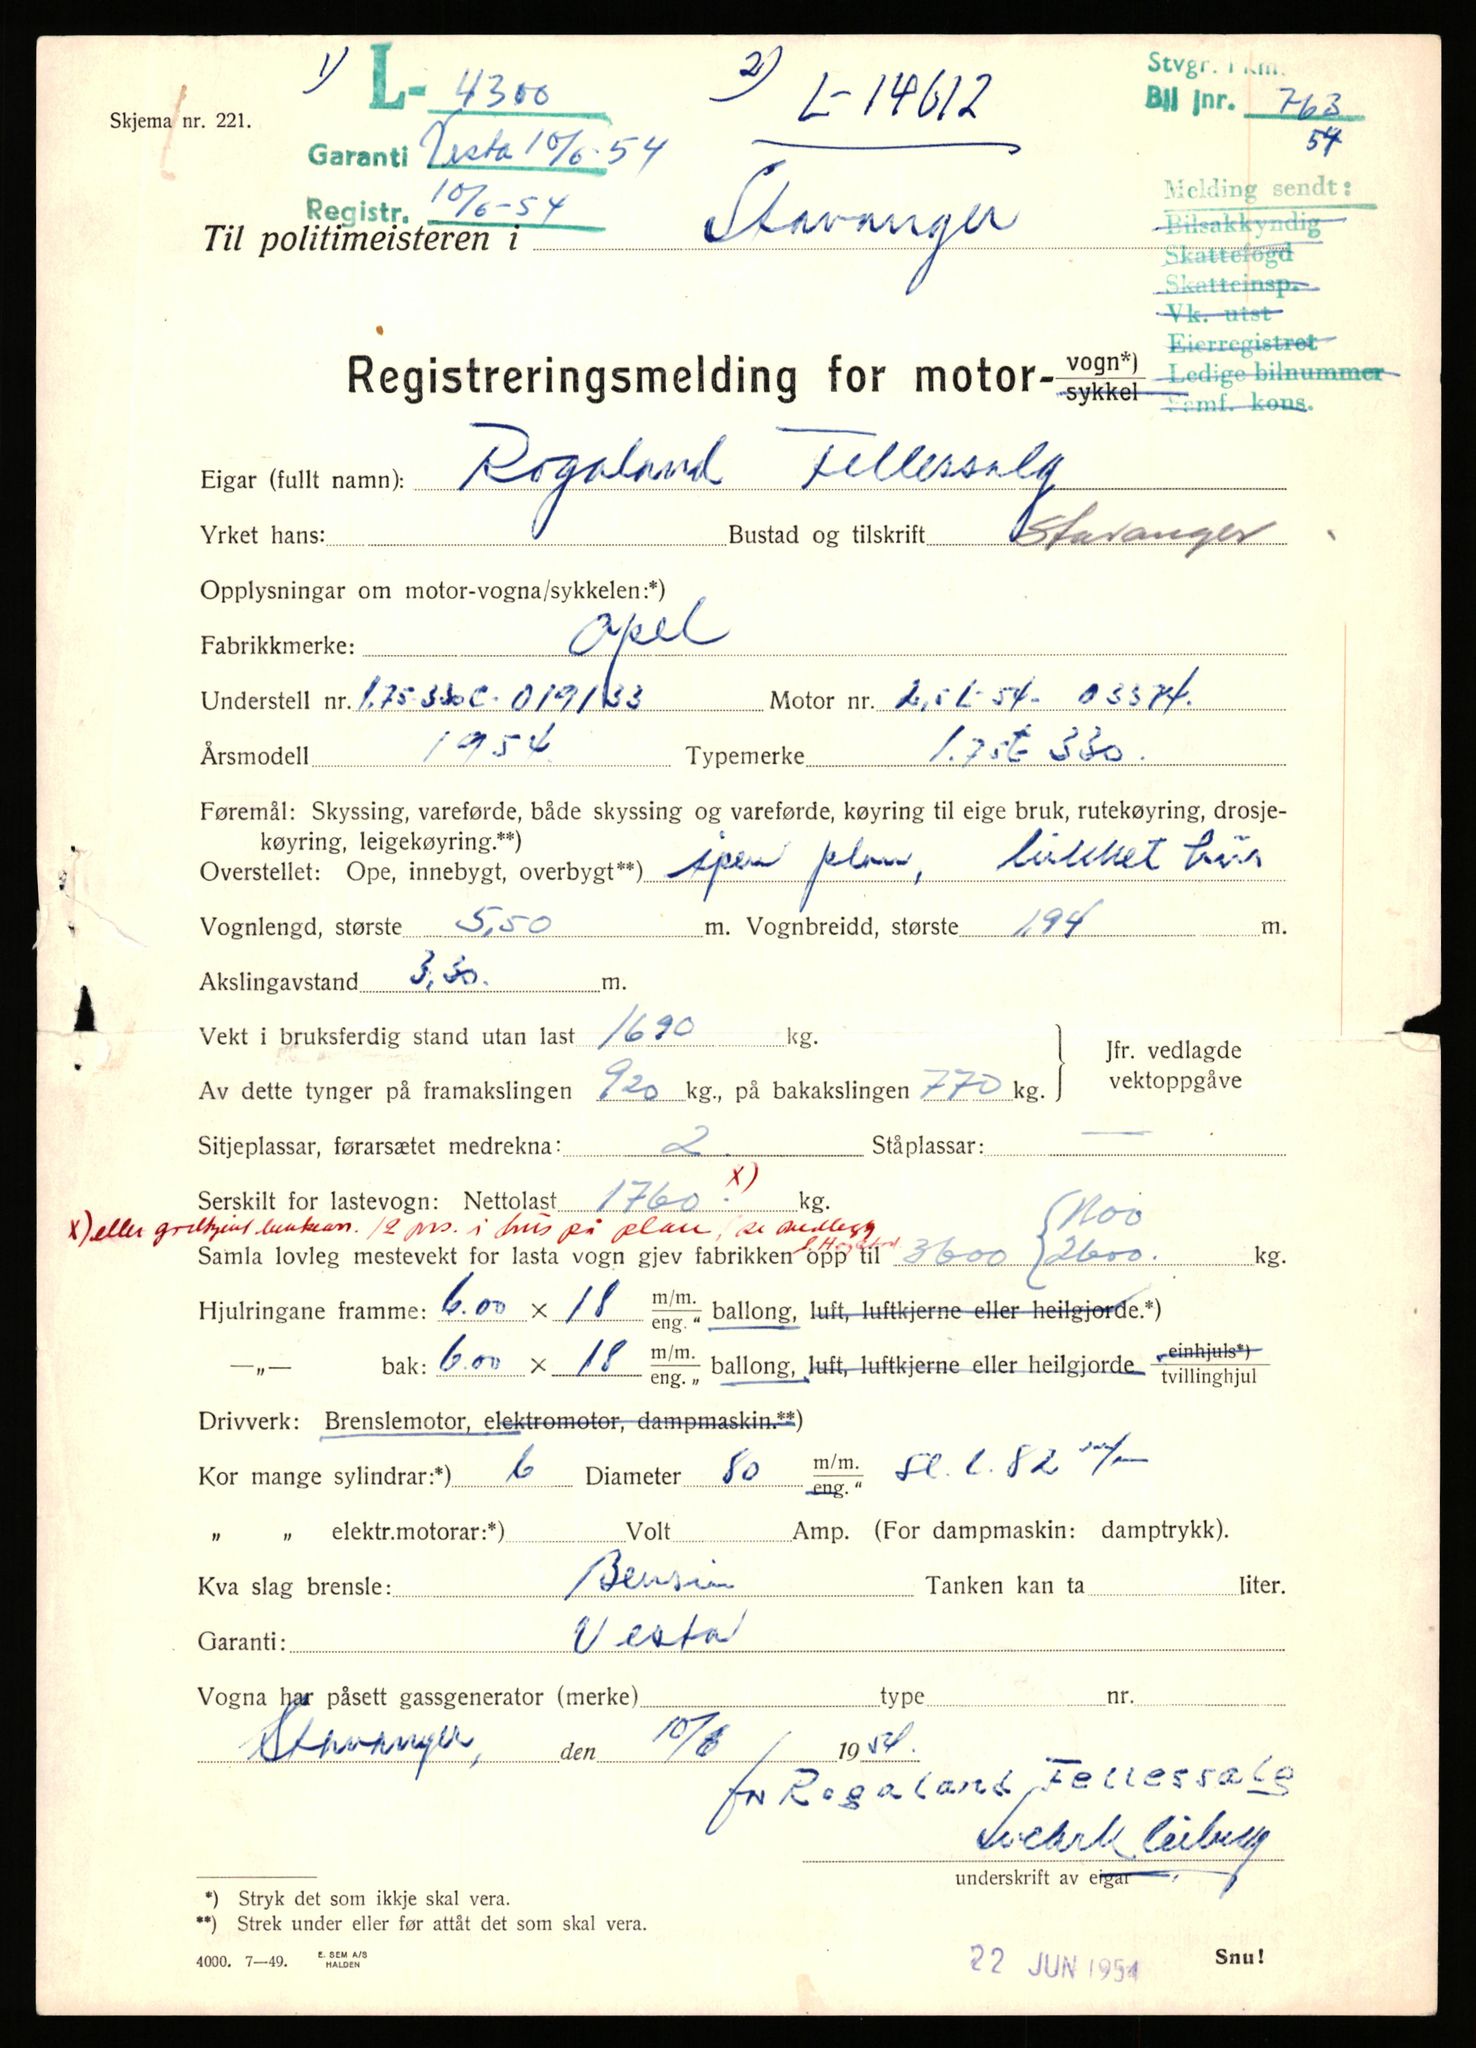 1) L- 4300
2) L-14612
Stvgr. 
Bil jnr. 763
54
Skjema nr. 221.
Garanti Vesta 10/6-54
Registr. 10/6-54
Melding sendt:
Bilsakkyndig
Skattefogd
Skatteinsp.
Vk. utst
Eierregistret
Ledige bilnummer
Samf. kons.
Til politimeisteren i Stavanger
Registreringsmelding for motor- vogn*)
sykkel
Eigar (fullt namn): Rogaland Fellessalg
Yrket hans: Bustad og tilskrift Stavanger
Opplysningar om motor-vogna/sykkelen:*)
Fabrikkmerke: Opel
Understell nr. 1.75-330C- 019133 Motor nr. 2,5L-54- 03374.
Årsmodell 1954. Typemerke 1.75t 330.
Føremål: Skyssing, vareførde, både skyssing og vareførde, køyring til eige bruk, rutekøyring, drosje-
køyring, leigekøyring.**)
Overstellet: Ope, innebygt, overbygt**) åpen plan, lukket hus
Vognlengd, største 5,50 m. Vognbreidd, største 1,94 m.
Akslingavstand 3,30. m.
Vekt i bruksferdig stand utan last 1690 kg.
Jfr. vedlagde
vektoppgåve
Av dette tynger på framakslingen 920 kg., på bakakslingen 770 kg.
Sitjeplassar, førarsætet medrekna: 2 Ståplassar: —
Serskilt for lastevogn: Nettolast 1760. x) kg.
x) eller godkjent 12 prs. i hus på plan, se vedlegg
1100
Samla lovleg mestevekt for lasta vogn gjev fabrikken opp til 3600 2600. kg.
Hjulringane framme: 6.00 × 18 m/m. eng. " ballong, luft, luftkjerne eller heilgjorde.*)
—„— bak: 6.00 × 18 m/m. eng. „ ballong, luft, luftkjerne eller heilgjorde einhjuls*) tvillinghjul
Drivverk: Brenslemotor, elektromotor, dampmaskin.**)
Kor mange sylindrar:*) 6 Diameter 80 m/m. eng. " Sl. l. 82 m/m
„ „ elektr.motorar:*) Volt Amp. (For dampmaskin: damptrykk).
Kva slag brensle: Bensin Tanken kan ta liter.
Garanti: Vesta
Vogna har påsett gassgenerator (merke) type nr.
Stavanger, den 10/6 1954.
for Rogaland Fellessalg
underskrift av eigar
*) Stryk det som ikkje skal vera.
**) Strek under eller før attåt det som skal vera.
4000. 7—49. E. SEM A/S
HALDEN
22 JUN 1954
Snu!